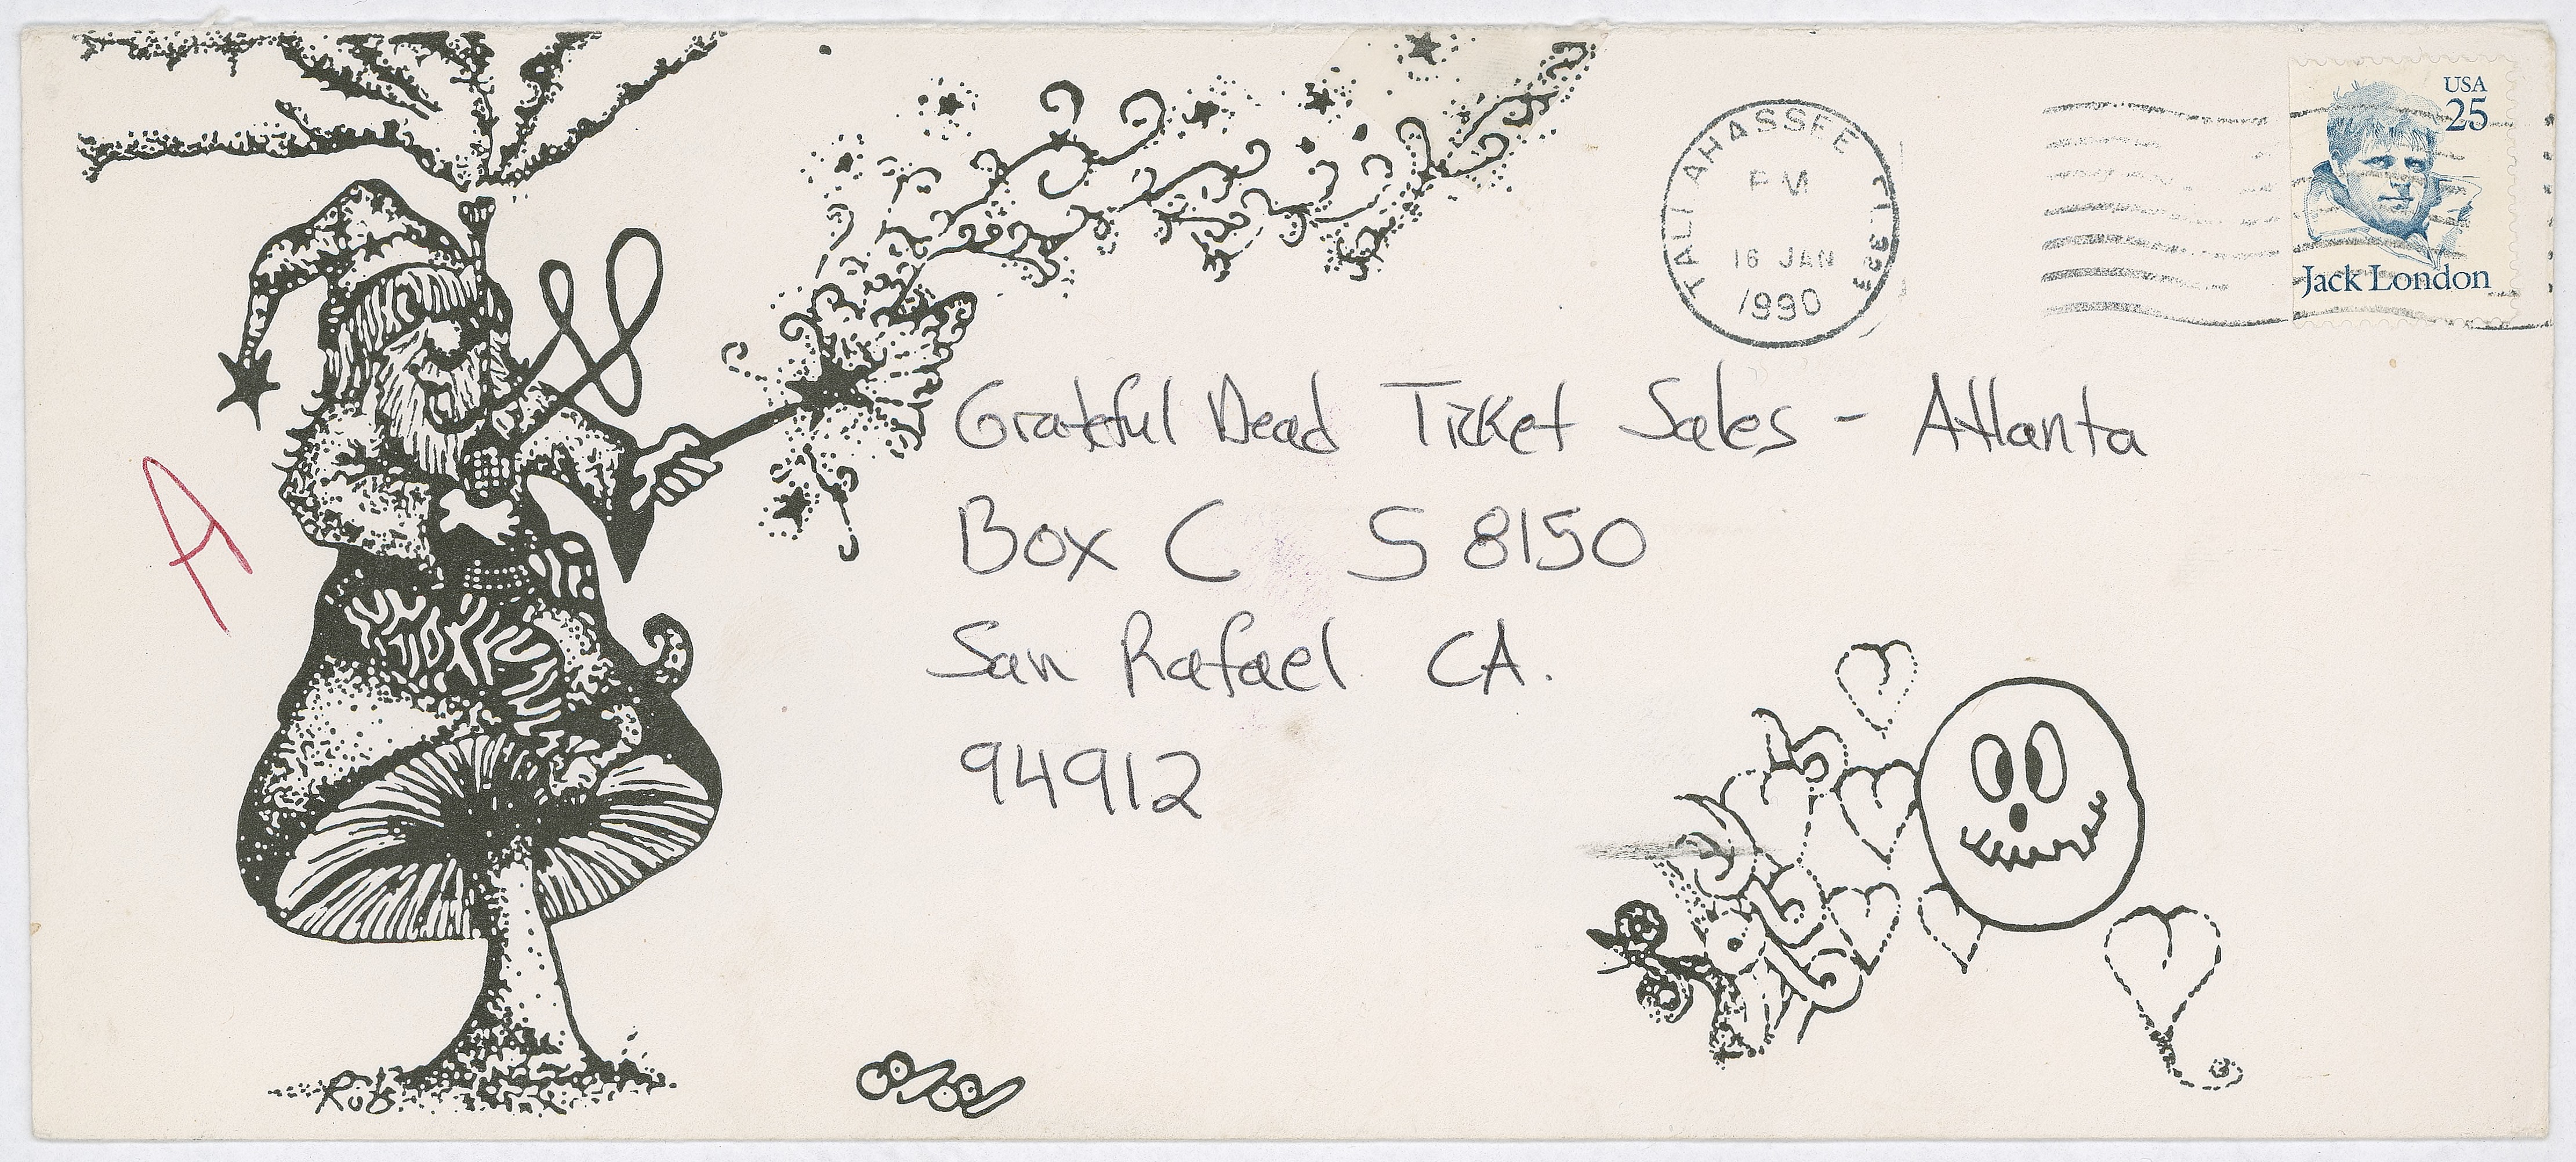 USA
25
Jack London
TALLAHASSEE FL 323
PM
16 JAN
1990
Grateful Dead Ticket Sales - Atlanta
Box C S 8150
San Rafael CA.
94912
A
Rob